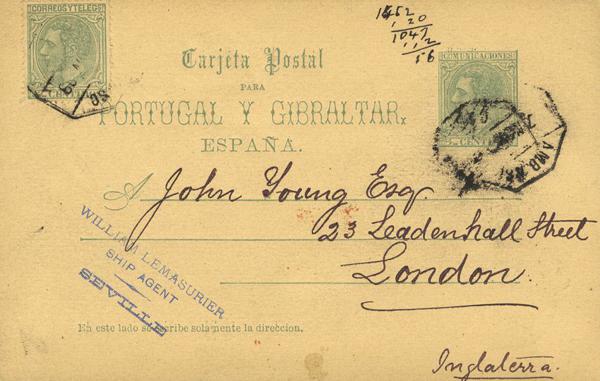 CORREOS Y TELEGS
1452
1 20
1047
1 1 2
56
Tarjeta Postal
COMUNICACIONES
PARA
PORTUGAL Y GIBRALTAR,
ESPAÑA.
A John Young Esq.
23 Leadenhall Street
London.
WILLIAM LEMASURIER
SHIP AGENT
SEVILLE
En este lado se escribe solamente la direccion.
Inglaterra.